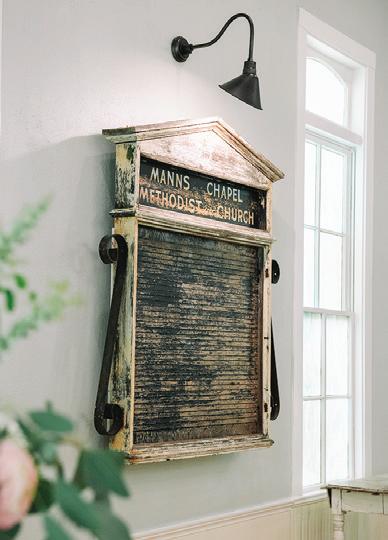 MANNS CHAPEL
METHODIST CHURCH